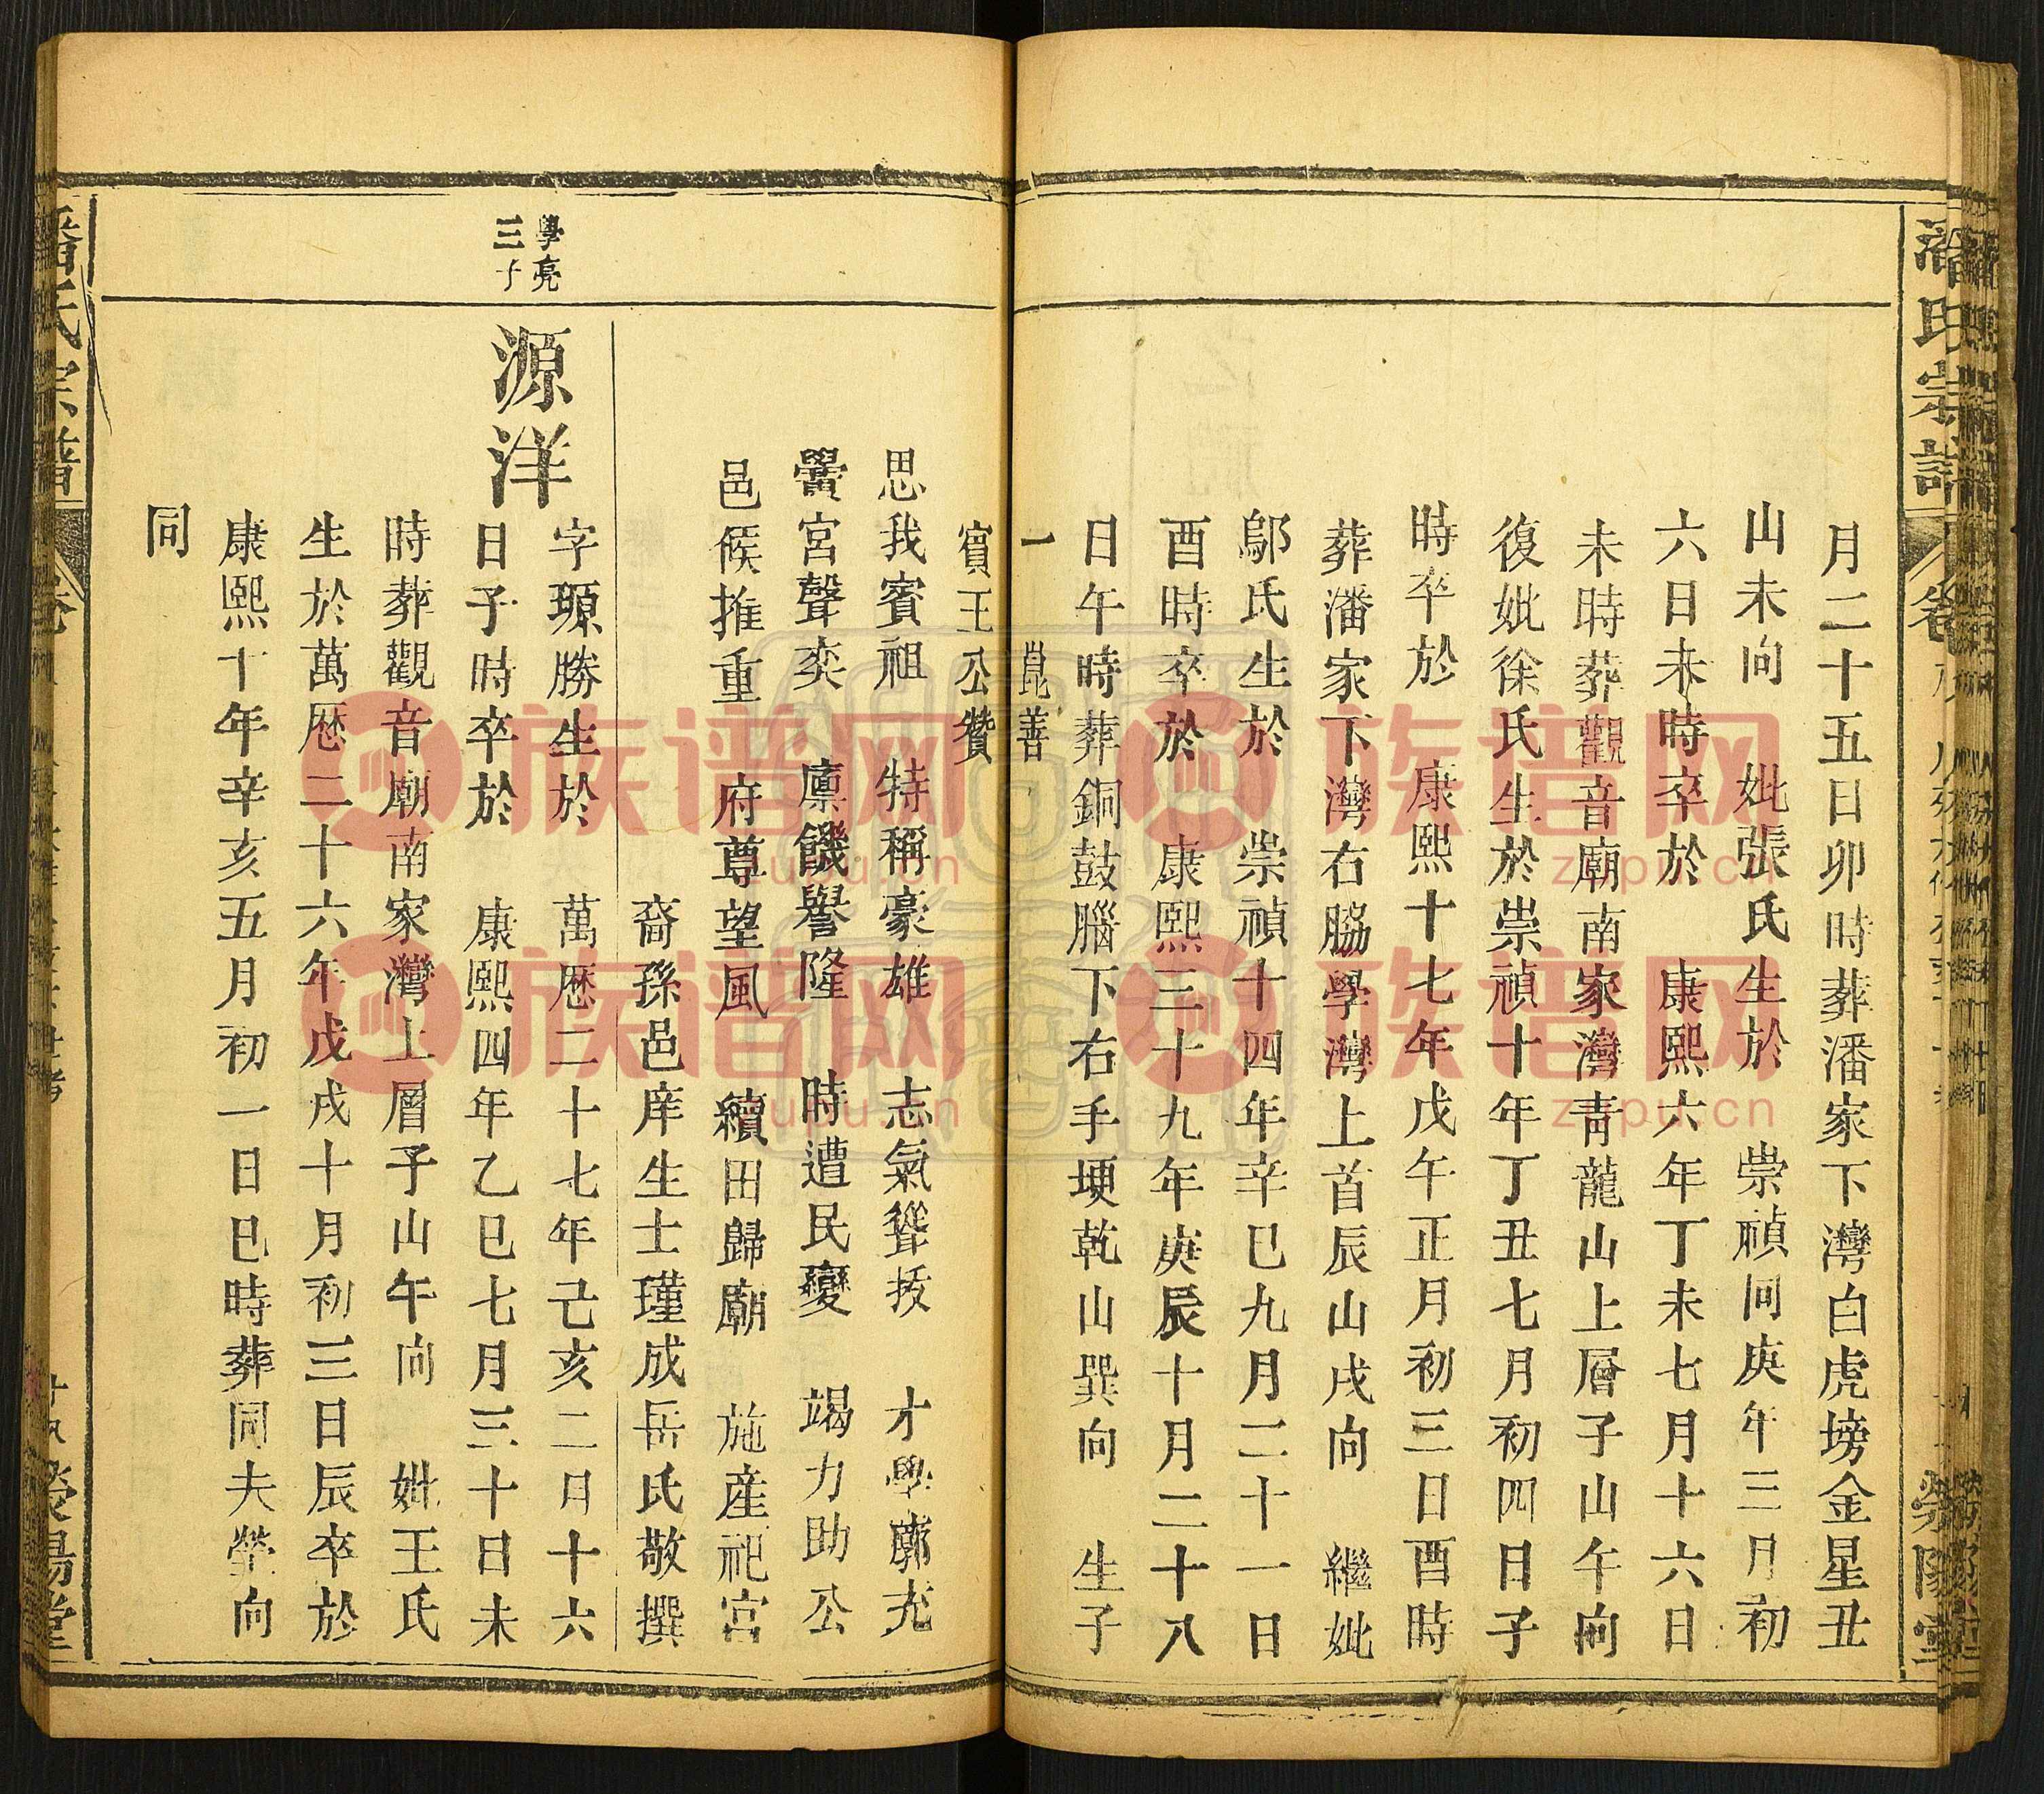 潘氏宗譜
卷
榮陽堂
月二十五日卯時葬潘家下灣白虎塝金星丑
山未向 妣張氏生於 崇禎同庚年三月初
六日未時卒於 康熙六年丁未七月十六日
未時葬觀音廟南家灣青龍山上層子山午向
復妣徐氏生於崇禎十年丁丑七月初四日子
時卒於 康熙十七年戊午正月初三日酉時
葬潘家下灣右脇學灣上首辰山戌向 繼妣
鄔氏生於 崇禎十四年辛巳九月二十一日
酉時卒於 康熙三十九年庚辰十月二十八
日午時葬銅鼓腦下右手埂乾山巽向 生子
一 崑善
賓王公贊
思我賓祖 特稱豪雄 志氣聳拔 才學廓充
黌宮聲奕 廩餼譽隆 時遭民變 竭力助公
邑候推重 府尊望風 續田歸廟 施産祀宮
裔孫邑庠生士瑾成岳氏敬撰
學亮
三子
源洋
字順勝生於 萬歷二十七年己亥二月十六
日子時卒於 康熙四年乙巳七月三十日未
時葬觀音廟南家灣上層子山午向 妣王氏
生於萬歷二十六年戊戌十月初三日辰卒於
康熙十年辛亥五月初一日巳時葬同夫塋向
同
潘氏宗譜
卷
榮陽堂
族谱网
zupu.cn
族谱网
zupu.cn
族谱网
zupu.cn
族谱网
zupu.cn